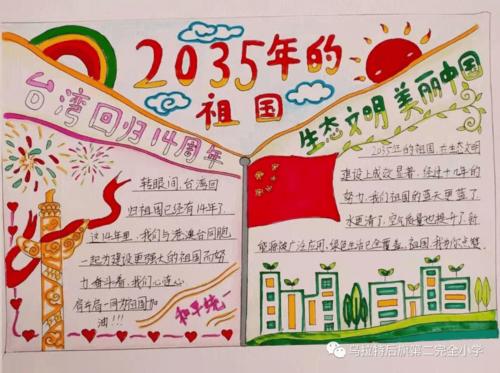 2035年的
祖国
台湾回归14周年
生态文明 美丽中国
转眼间,台湾回
归祖国已经有14年了,
这14年里,我们与港澳台同胞
一起为建设更强大的祖国而努
力奋斗着,我们心连心
肩并肩一同为祖国加
油!!!
和平统一
2035年的祖国,在生态文明
建设上成效显著,经过十几年的
努力,我们祖国的蓝天更蓝了
水更清了,空气质量也提升了,新
能源被广泛应用,绿色生活已全覆盖,祖国,我为你点赞
乌拉特后旗第二完全小学